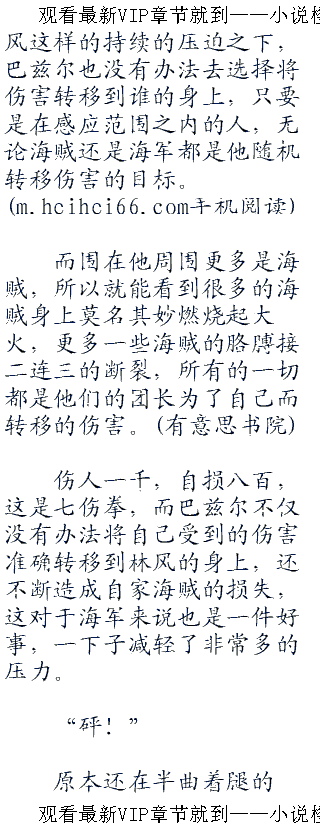 观看最新VIP章节就到——小说检
风这样的持续的压迫之下，
巴兹尔也没有办法去选择将
伤害转移到谁的身上，只要
是在感应范围之内的人，无
论海贼还是海军都是他随机
转移伤害的目标。
(m.hcihci66.com手机阅读)
而围在他周围更多是海
贼，所以就能看到很多的海
贼身上莫名其妙燃烧起大
火，更多一些海贼的胳膊接
二连三的断裂，所有的一切
都是他们的团长为了自己而
转移的伤害。(有意思书院)
伤人一千，自损八百，
这是七伤拳，而巴兹尔不仅
没有办法将自己受到的伤害
准确转移到林风的身上，还
不断造成自家海贼的损失，
这对于海军来说也是一件好
事，一下子减轻了非常多的
压力。
“砰！”
原本还在半曲着腿的
观看最新VIP章节就到——小说检